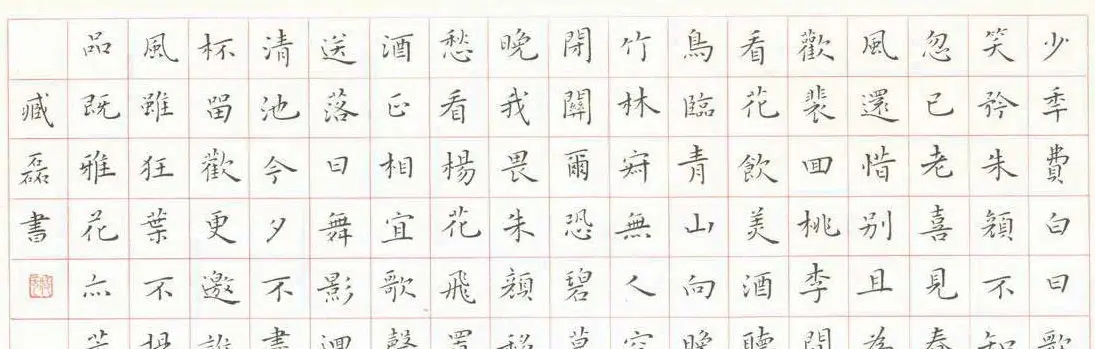 少季費白日歌
笑矜朱顔不知
忽已老喜見春
風還惜别且為
歡裴回桃李間
看花飲美酒聽
鳥臨青山向晚
竹林寂無人空
閉關爾恐碧草
晚我畏朱顔移
愁看楊花飛置
酒正相宜歌聲
送落日舞影迴
清池今夕不盡
杯留歡更邀誰
風雖狂葉不
品既雅花亦
臧磊書